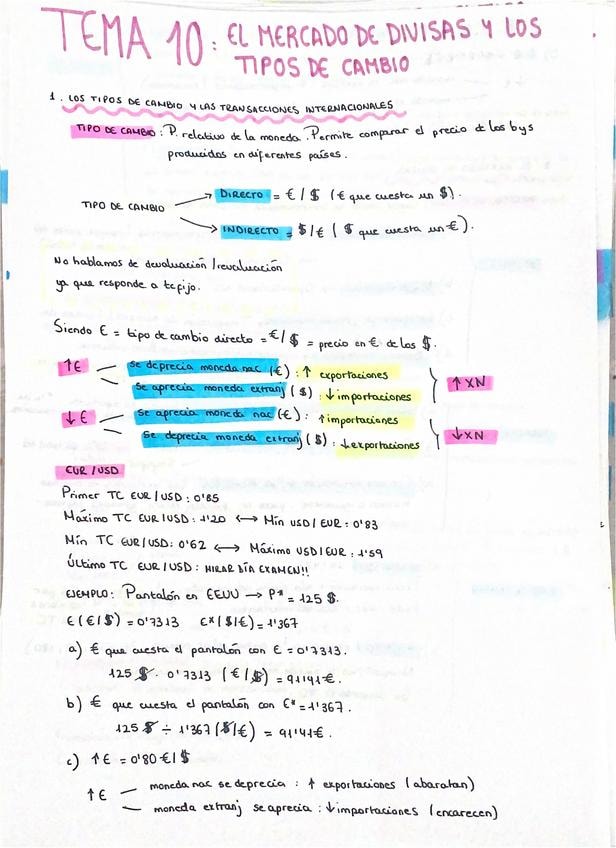 TEMA 10: EL MERCADO DE DIVISAS Y LOS
TIPOS DE CAMBIO
1. LOS TIPOS DE CAMBIO Y LAS TRANSACCIONES INTERNACIONALES
TIPO DE CAMBIO: P. relativo de la moneda. Permite comparar el precio de los bys
producidos en diferentes países.
TIPO DE CAMBIO
DIRECTO = €/$ (€ que cuesta un $).
INDIRECTO = $/€ ($ que cuesta un €).
No hablamos de devaluación/revaluación
ya que responde a tc fijo.
Siendo E = tipo de cambio directo = €/$ = precio en € de los $.
↑E
Se deprecia moneda nac (€): ↑ exportaciones
Se aprecia moneda extranj ($): ↓ importaciones
↑XN
↓E
Se aprecia moneda nac (€): ↑importaciones
Se deprecia moneda extranj ($): ↓exportaciones
↓XN
EUR/USD
Primer TC EUR/USD: 0'85
Máximo TC EUR/USD: 1'20 ⟷ Mín USD/EUR: 0'83
Mín TC EUR/USD: 0'62 ⟷ Máximo USD/EUR: 1'59
Último TC EUR/USD: MIRAR DÍA EXAMEN!!
EJEMPLO: Pantalón en EEUU → P* = 125 $.
E(€/$) = 0'7313 E*($/€) = 1'367
a) € que cuesta el pantalón con E = 0'7313.
125 $ · 0'7313 (€/$) = 91'41 €.
b) € que cuesta el pantalón con E* = 1'367.
125 $ ÷ 1'367 ($/€) = 91'41 €.
c) ↑E = 0'80 €/$
↑E
moneda nac se deprecia: ↑ exportaciones (abaratan)
moneda extranj se aprecia: ↓importaciones (encarecen)